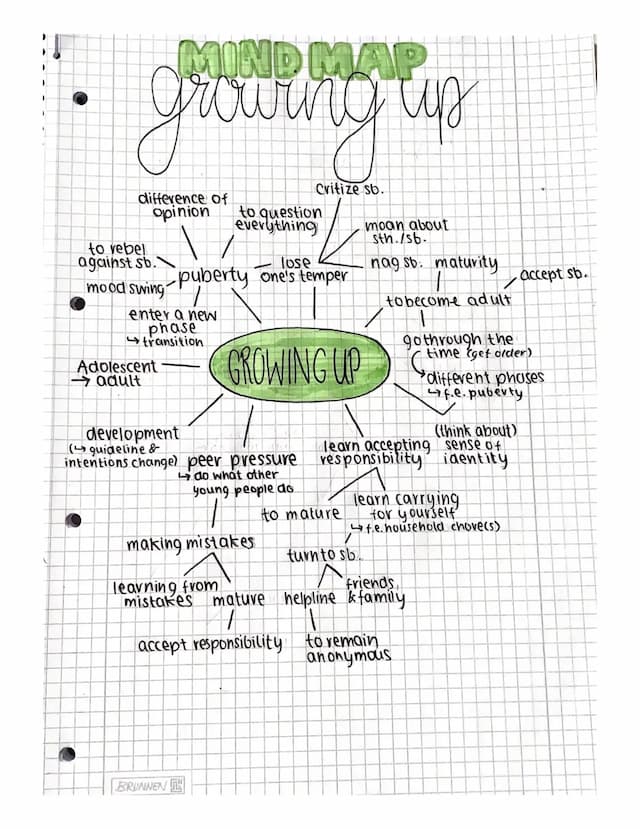 MIND MAP
growing up
critize sb.
difference of
opinion
to question
everything
moan about
sth./sb.
to rebel
against sb.
mood swing
puberty
lose
one's temper
nag sb.
maturity
accept sb.
to become adult
enter a new
phase
↳ transition
go through the
time (get order)
different phases
↳ f.e. puberty
Adolescent
→ adult
GROWING UP
development
(↳ guideline &
intentions change)
peer pressure
↳ do what other
young people do
learn accepting
responsibility
(think about)
sense of
identity
to mature
learn carrying
for yourself
↳ f.e. household chore(s)
making mistakes
turn to sb.
learning from
mistakes
mature
helpline
friends
& family
accept responsibility
to remain
anonymous
BRUNNEN